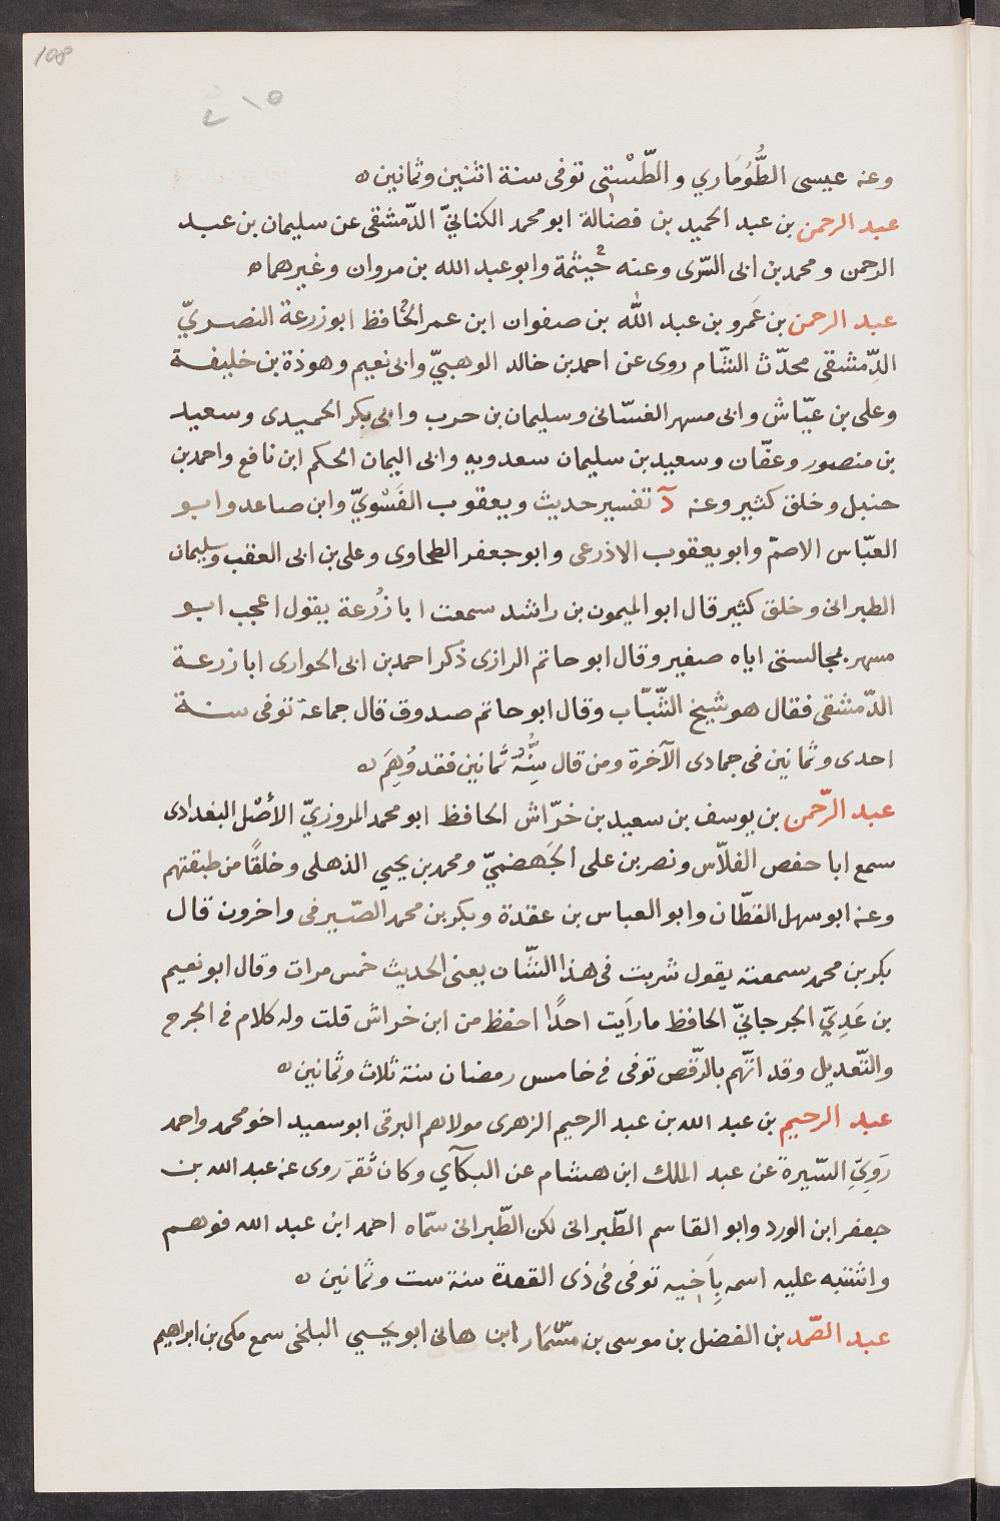 108
٢١٥
وعنه عيسى الطُّوُمَاري والطّسْتى توفى سنة اثنين وثمانين ه
عبد الرحمن بن عبد الحميد بن فضالة ابو محمد الكنانيّ الدّمشقى عن سليمان بن عبد
الرحمن ومحمد بن ابى السّرى وعنه خيثمة وابو عبد الله بن مروان وغيرهما ه
عبد الرحمن بن عَمرو بن عبد الله بن صفوان ابن عمر الحافظ ابو زرعة النصريّ
الدِّمشقى محدّث الشّام روى عن احمد بن خالد الوهبيّ وابى نعيم وهوذة بن خليفة
وعلى بن عيّاش وابى مسهر الغسّانى وسليمان بن حرب وابى بكر الحميدى وسعيد
بن منصور وعفّان وسعيد بن سليمان سعدويه وابى اليمان الحكم ابن نافع واحمد بن
حنبل وخلق كثير وعنه دٓ تفسير حديث ويعقوب الفَسْويّ وابن صاعد وابو
العبّاس الاصمّ وابو يعقوب الاذرعى وابو جعفر الطحاوى وعلى بن ابى العقب وسليمان
الطبرانى وخلق كثير قال ابو الميمون بن راشد سمعت ابا زُرعة يقول اعجب ابو
مسهر بمجالستى اياه صغير وقال ابو حاتم الرازى ذكر احمد بن ابى الحوارى ابا زرعة
الدّمشقى فقال هو شيخ الشّبّاب وقال ابو حاتم صدوق قال جماعة توفى سنة
احدى وثمانين فى جمادى الآخرة ومن قال سنة ثمانين فقد وُهِمَ ه
عبد الرّحمن بن يوسف بن سعيد بن خرّاش الحافظ ابو محمد المروزيّ الأصْل البغدادى
سمع ابا حفص الفلّاس ونصر بن على الجَهضميّ ومحمد بن يحيي الذهلى وخلقًا من طبقتهم
وعنه ابو سهل القطّان وابو العباس بن عقدة وبكر بن محمد الصّيرفى واخرون قال
بكر بن محمد سمعته يقول شربت فى هذا الشّان يعنى الحديث خمس مرات وقال ابو نعيم
بن عَدِيّ الجرجانيّ الحافظ مارأيت احدًا احفظ من ابن خراش قلت وله كلام فى الجرح
والتّعديل وقد اتّهم بالرّفص توفى فى خامس رمضان سنة ثلاث وثمانين ه
عبد الرحيم بن عبد الله بن عبد الرحيم الزهرى مولاهم البرقى ابو سعيد اخو محمد واحمد
رَوِيِّ السّيرة عن عبد الملك ابن هشام عن البكآي وكان ثقة روى عنه عبد الله بن
جعفر ابن الورد وابو القاسم الطّبرانى لكن الطّبرانى سمّاه احمد ابن عبد الله فوهم
واشتبه عليه اسمه بِاَخيه توفى فى ذى القعدة سنة ست وثمانين ه
عبد الصّمد بن الفضل بن موسى بن مسّمَار ابن هانى ابو يحيي البلخى سمع مكى بن ابراهيم